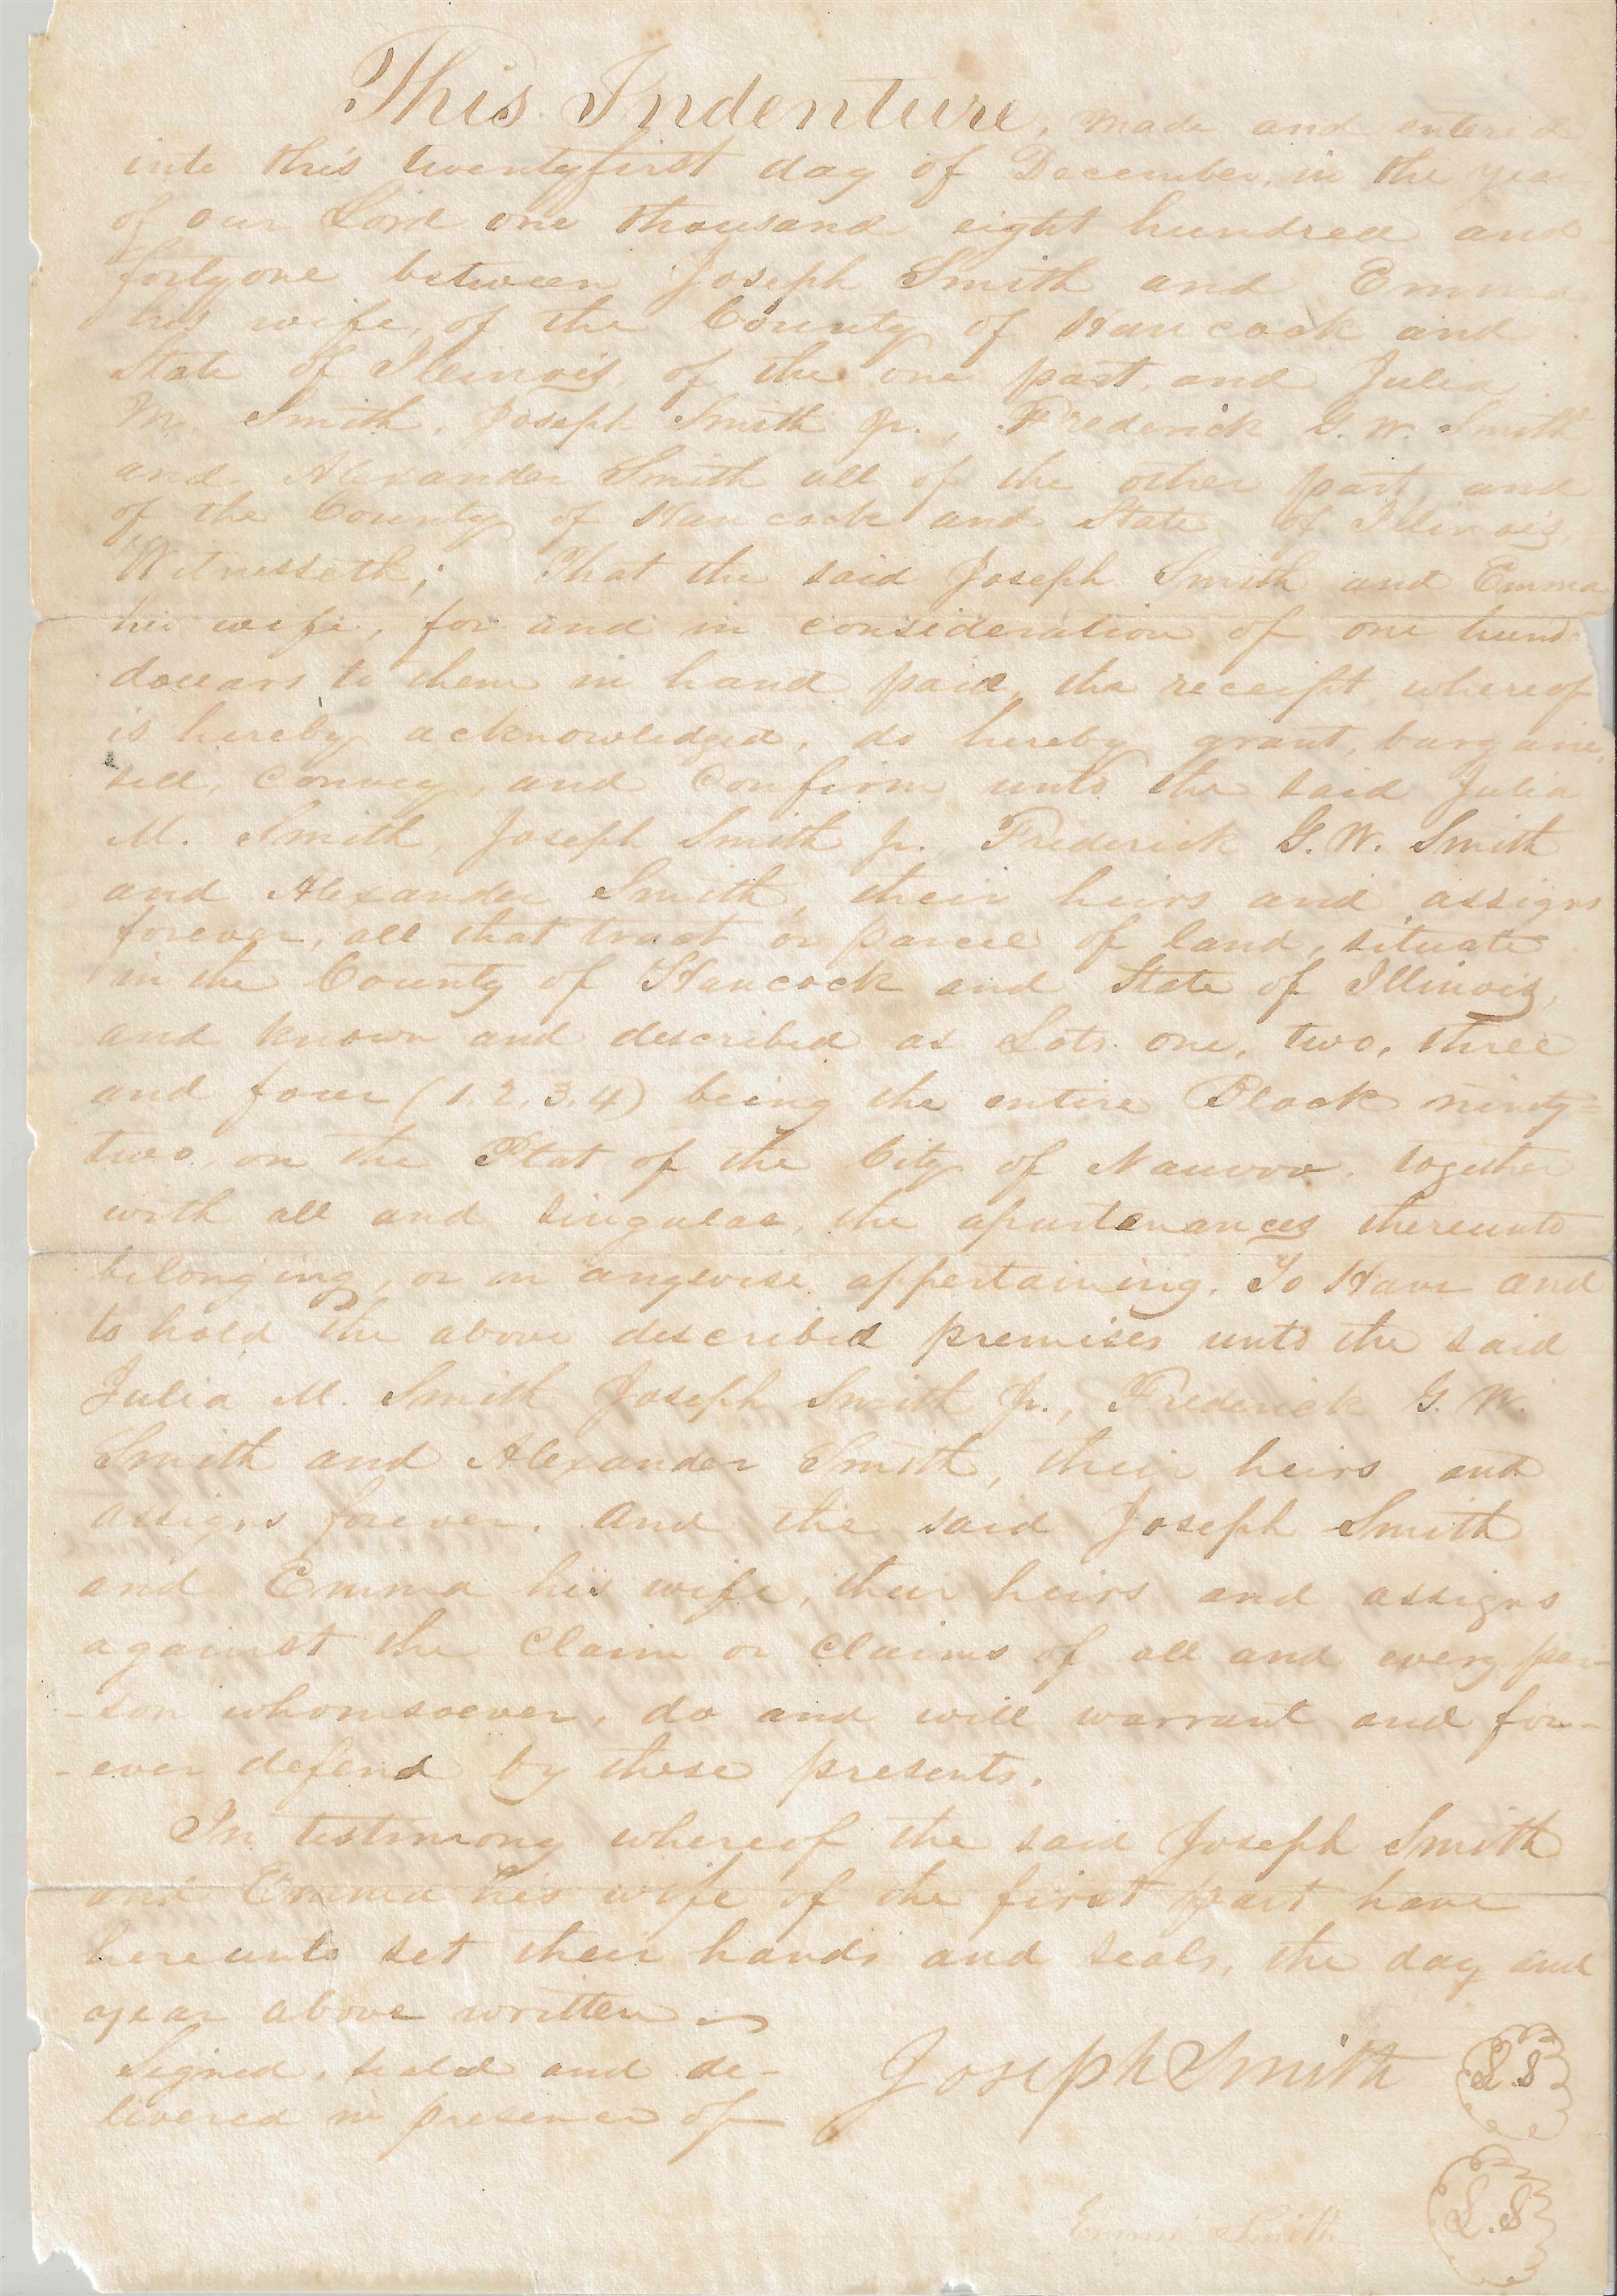 This Indenture, made and entered
into this twentyfirst day of December, in the year
of our Lord one thousand eight hundred and
fortyone between Joseph Smith and Emma
his wife, of the County of Hancock and
State of Illinois, of the one part, and Julia
M. Smith, Joseph Smith Jr., Frederick G. W. Smith
and Alexander Smith all of the other part, and
of the County of Hancock and State of Illinois
Witnesseth; That the said Joseph Smith and Emma
his wife, for and in consideration of one hund
dollars to them in hand paid, the receipt whereof
is hereby acknowledged, do hereby grant, bargain,
sell, convey, and confirm unto the said Julia
M. Smith, Joseph Smith Jr. Frederick G. W. Smith
and Alexander Smith, their heirs and assigns
forever, all that tract or parcel of land, situate
in the County of Hancock and State of Illinois,
and known and described as Lots one, two, three
and four (1. 2. 3. 4) being the entire Block ninety=
two on the Plat of the City of Nauvoo. together
with all and singular, the apurtenances thereunto
belonging, or in anywise appertaining. To Have and
to hold the above described premises unto the said
Julia M. Smith Joseph Smith Jr., Frederick G. W.
Smith and Alexander Smith, their heirs and
assigns forever. And the said Joseph Smith
and Emma his wife, their heirs and assigns
against the claim or claims of all and every per-
-son whomsoever, do and will warrant and for-
-ever defend by these presents.
In testimony whereof the said Joseph Smith
and Emma his wife of the first part have
hereunto set their hands and seals, the day and
year above written
Signed, sealed and de- Joseph Smith L S
livered in presence of
Emma Smith L. S